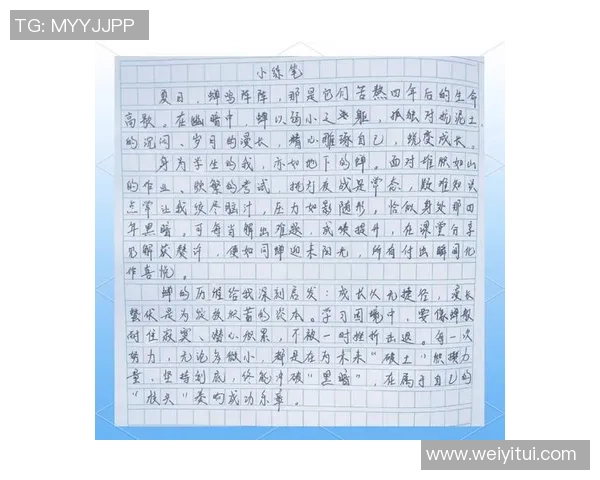 TG: MYYJJPP
小练笔
夏日，蝉鸣阵阵，那是它们苦熬四年后的生命
高歌。在幽暗中，蝉以弱小之躯，孤独对抗泥土
的沉闷、岁月的漫长，精心雕琢自己，蜕变成长。
身为学生的我，亦如地下的蝉。面对堆积如山
的作业、频繁的考试，挑灯夜战是常态，疑难知识
点常让我绞尽脑汁，压力如影随形，恰似身处那四
年黑暗。可每当解出难题，成绩提升，在课堂分享
见解获赞许，便如同蝉迎来阳光，所有付出瞬间化
作喜悦。
蝉的历程给我深刻启发：成长从无捷径，漫长
蛰伏是为绽放积蓄的资本。学习困境中，要像蝉般
耐住寂寞、潜心积累，不被一时挫折击退。每一次
努力，无论多微小，都是在为未来“破土”积攒力
量，坚持到底，终能冲破“黑暗”，在属于自己的
“枝头”奏响成功乐章。
www.weiyitui.com